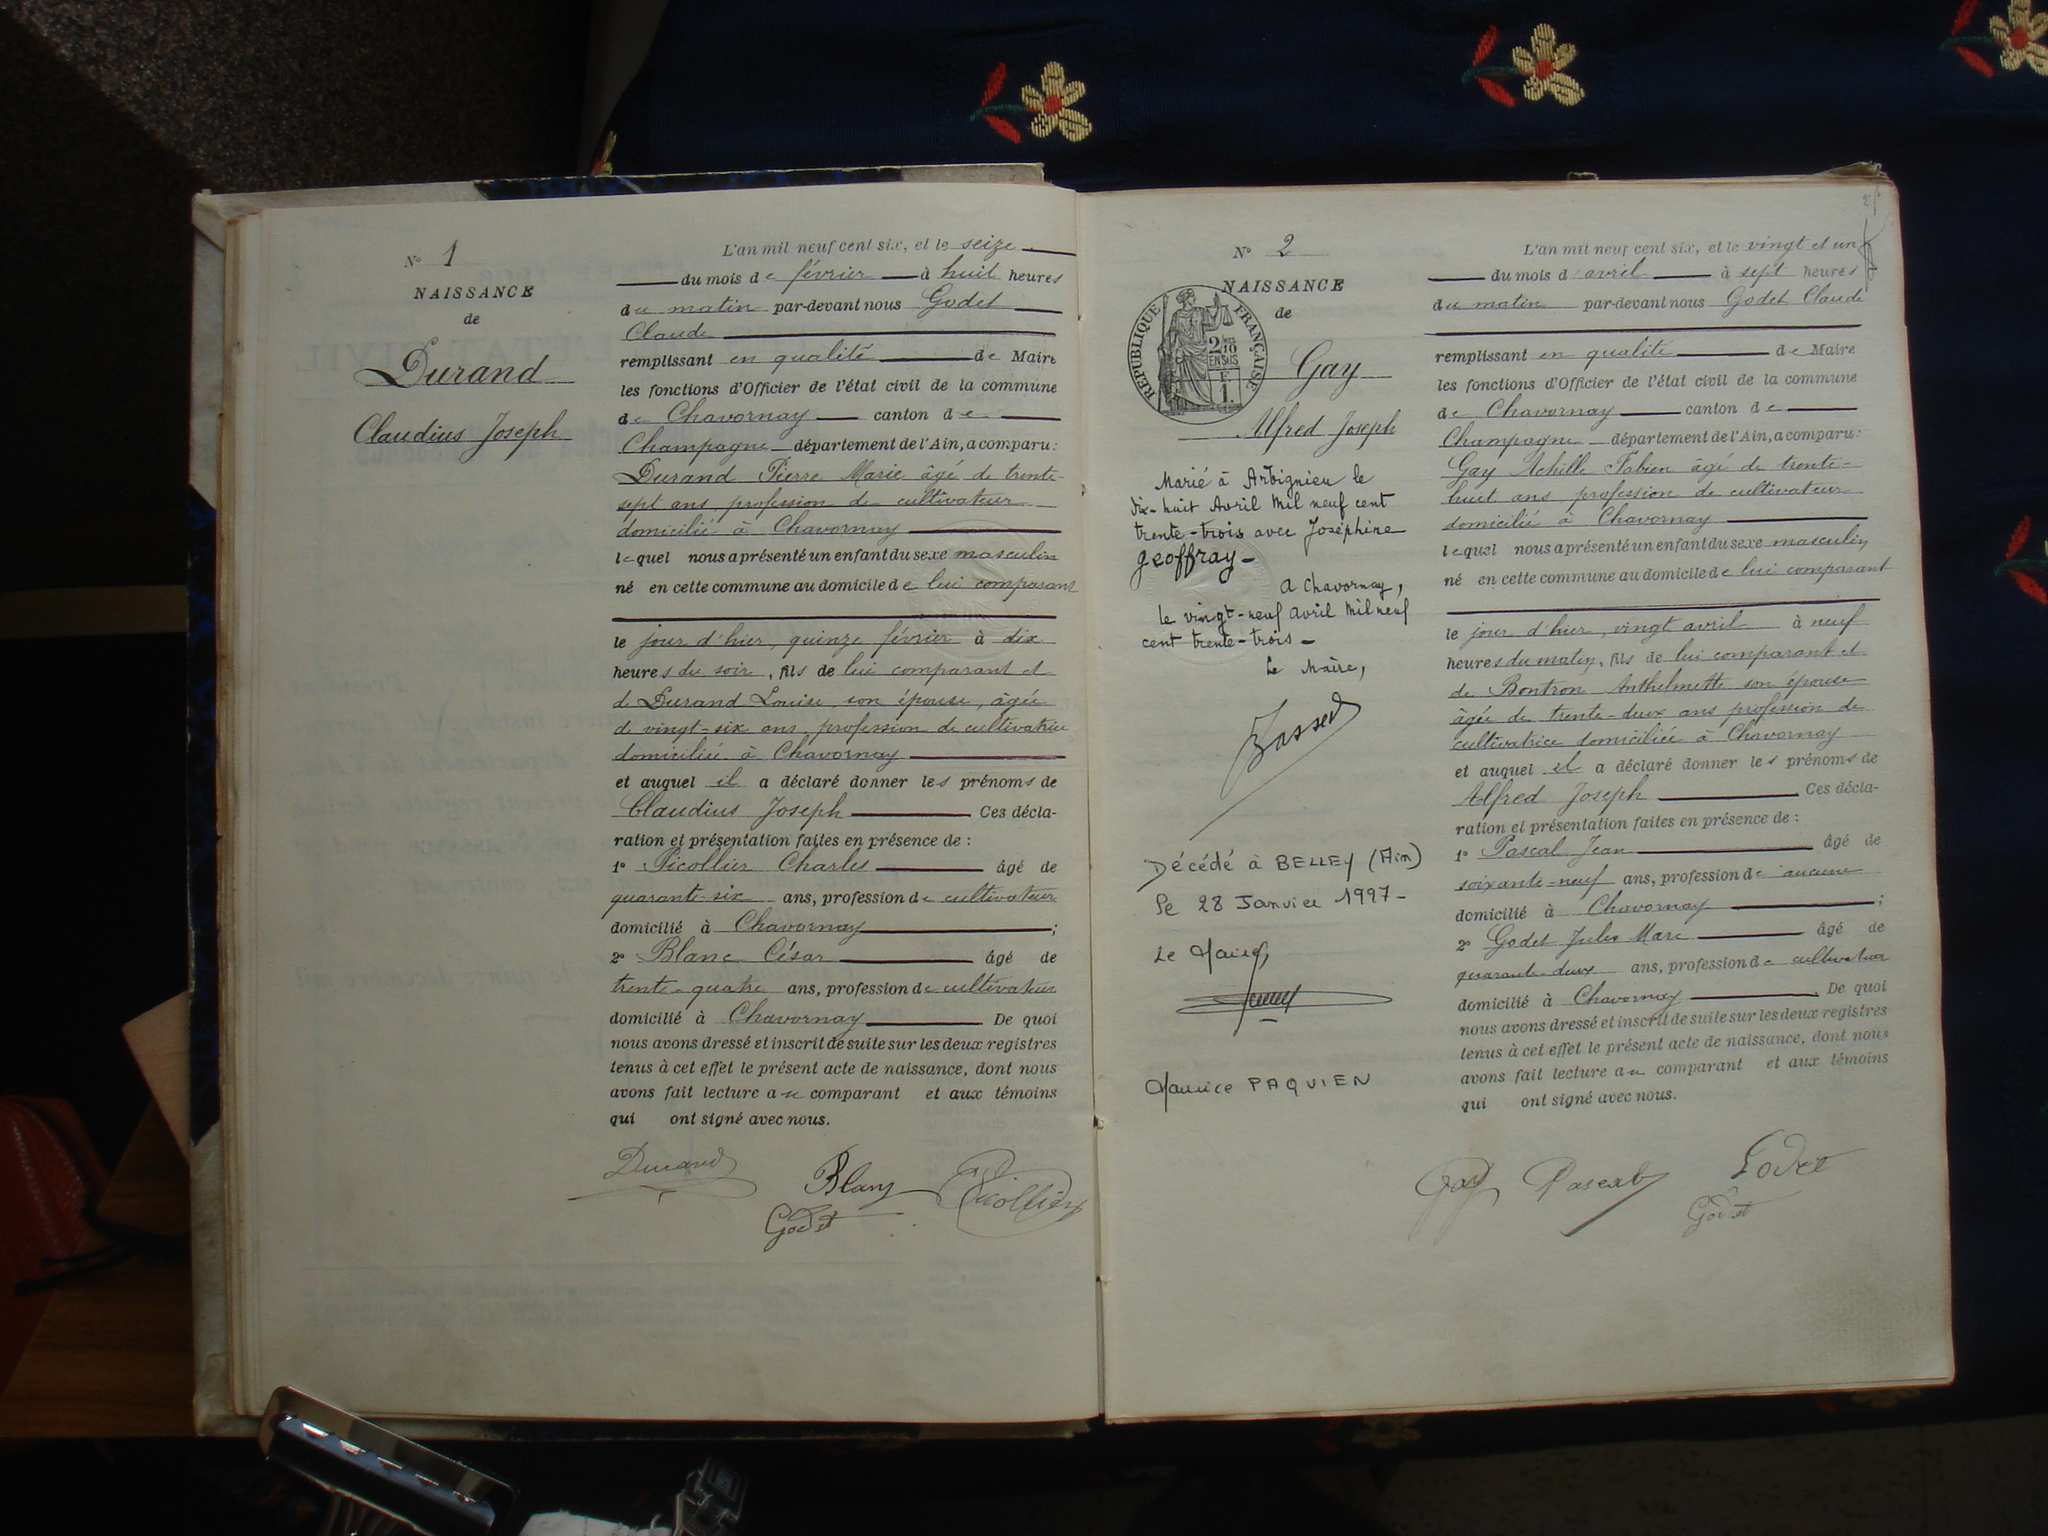 N° 1
NAISSANCE
de
Durand
Claudius Joseph
L'an mil neuf cent six, et le seize
du mois de février à huit heures
du matin par-devant nous Godet
Claude
remplissant en qualité de Maire
les fonctions d'Officier de l'état civil de la commune
de Chavornay canton de
Champagne département de l'Ain, a comparu:
Durand Pierre Marie âgé de trente-
sept ans, profession de cultivateur
domicilié à Chavornay
lequel nous a présenté un enfant du sexe masculin
né en cette commune au domicile de lui comparant
le jour d'hier, quinze février à dix
heures du soir, fils de lui comparant et
d Durand Louise, son épouse, âgée
d vingt-six ans, profession de cultivatrice
domiciliée à Chavornay
et auquel il a déclaré donner les prénoms de
Claudius Joseph Ces décla-
ration et présentation faites en présence de :
1° Picollier Charles âgé de
quarante-six ans, profession de cultivateur
domicilié à Chavornay ;
2° Blanc César âgé de
trente-quatre ans, profession de cultivateur
domicilié à Chavornay De quoi
nous avons dressé et inscrit de suite sur les deux registres
tenus à cet effet le présent acte de naissance, dont nous
avons fait lecture au comparant et aux témoins
qui ont signé avec nous.
Durand
Blanc Picollier
Godet
N° 2
NAISSANCE
de
REPUBLIQUE FRANÇAISE
2/10
EN SUS
F
1.
Gay
Alfred Joseph
Marié à Arbignieu le
dix-huit Avril Mil neuf cent
trente-trois avec Joséphine
Geoffray -
A Chavornay,
le vingt-neuf avril Mil neuf
cent trente-trois -
Le Maire,
Décédé à BELLEY (Ain)
le 28 Janvier 1997 -
Le Maire,
Maurice PAQUIEN
L'an mil neuf cent six, et le vingt et un
du mois d'avril à sept heures
du matin par-devant nous Godet Claude
remplissant en qualité de Maire
les fonctions d'Officier de l'état civil de la commune
de Chavornay canton de
Champagne département de l'Ain, a comparu:
Gay Achille Fabien âgé de trente-
huit ans, profession de cultivateur
domicilié à Chavornay
lequel nous a présenté un enfant du sexe masculin
né en cette commune au domicile de lui comparant
le jour d'hier, vingt avril à neuf
heures du matin, fils de lui comparant et
de Bontron Anthelmette son épouse
âgée de trente-deux ans profession de
cultivatrice domiciliée à Chavornay
et auquel il a déclaré donner les prénoms de
Alfred Joseph Ces décla-
ration et présentation faites en présence de :
1° Pascal Jean âgé de
soixante-neuf ans, profession de aucune
domicilié à Chavornay ;
2° Godet Jules Marc âgé de
quarante-deux ans, profession de cultivateur
domicilié à Chavornay . De quoi
nous avons dressé et inscrit de suite sur les deux registres
tenus à cet effet le présent acte de naissance, dont nous
avons fait lecture au comparant et aux témoins
qui ont signé avec nous.
Gay Pascal Godet
Godet